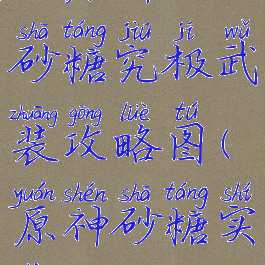 shā táng jiū jí wǔ
砂糖究极武
zhuāng gōng lüè tú
装攻略图(
yuán shén shā táng shí
原神砂糖实